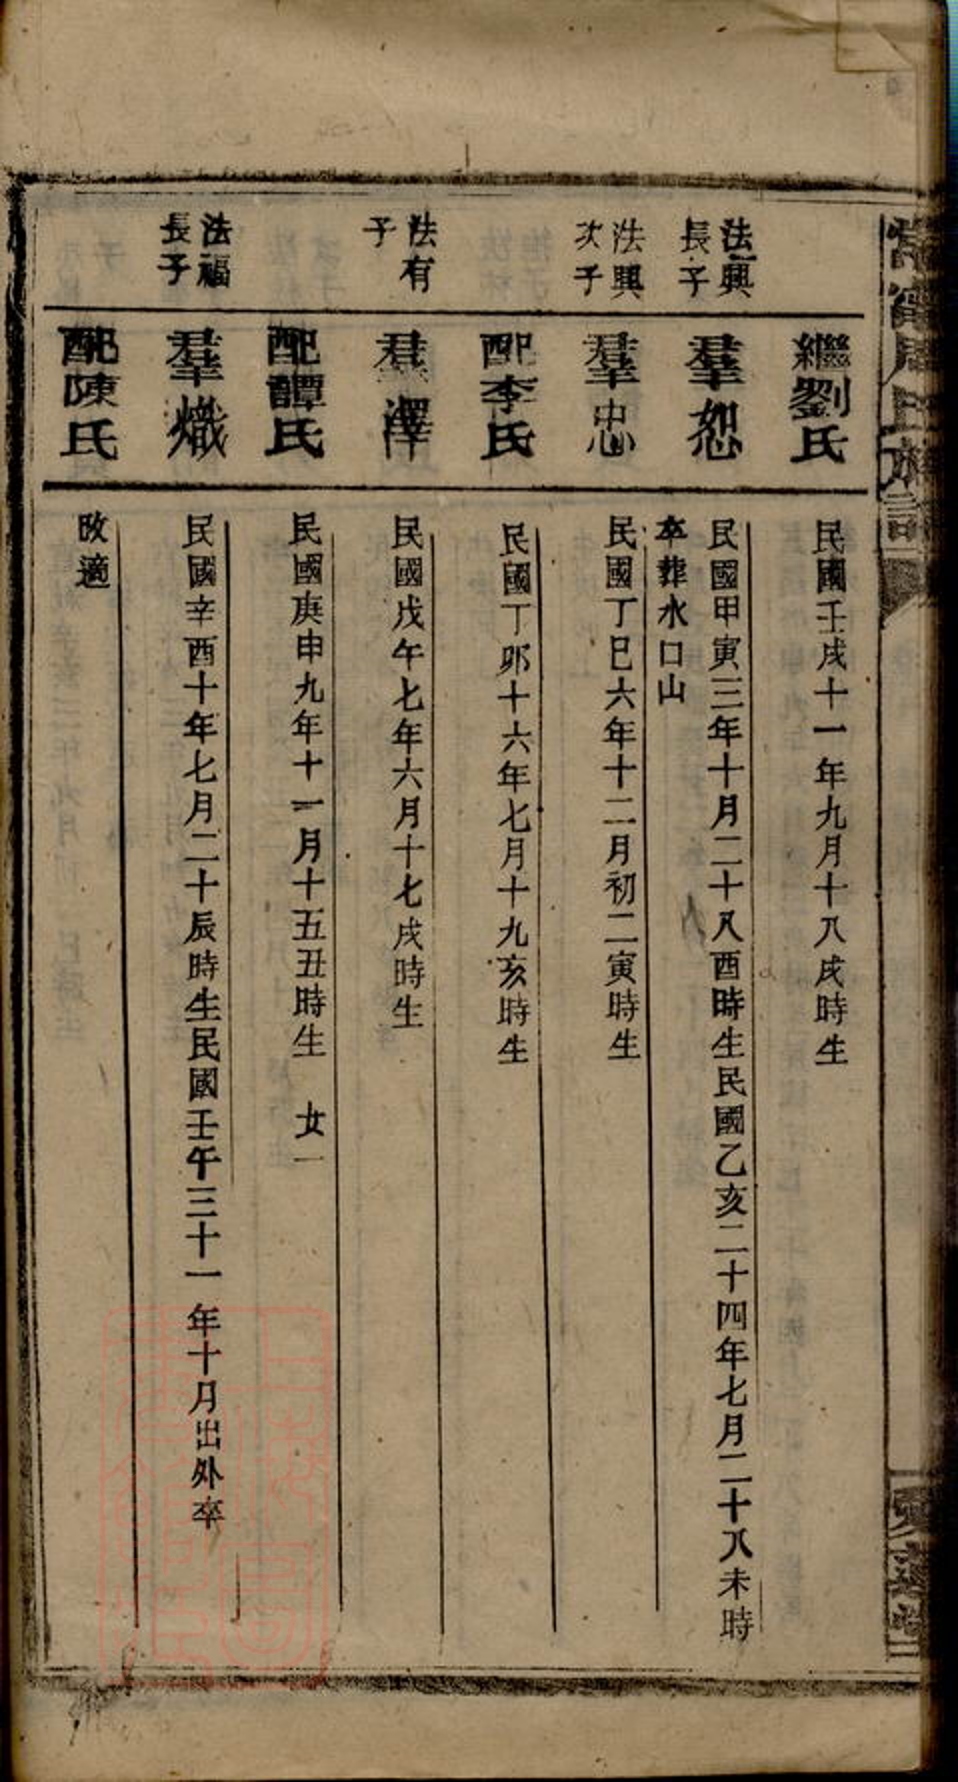 繼劉氏
民國壬戌十一年九月十八戌時生
法興長子
羣恕
民國甲寅三年十月二十八酉時生民國乙亥二十四年七月二十八未時
卒葬水口山
法興次子
羣忠
民國丁巳六年十二月初二寅時生
配李氏
民國丁卯十六年七月十九亥時生
法有子
羣澤
民國戊午七年六月十七戌時生
配譚氏
民國庚申九年十一月十五丑時生 女一
法福長子
羣熾
民國辛酉十年七月二十辰時生民國壬午三十一年十月出外卒
配陳氏
改適